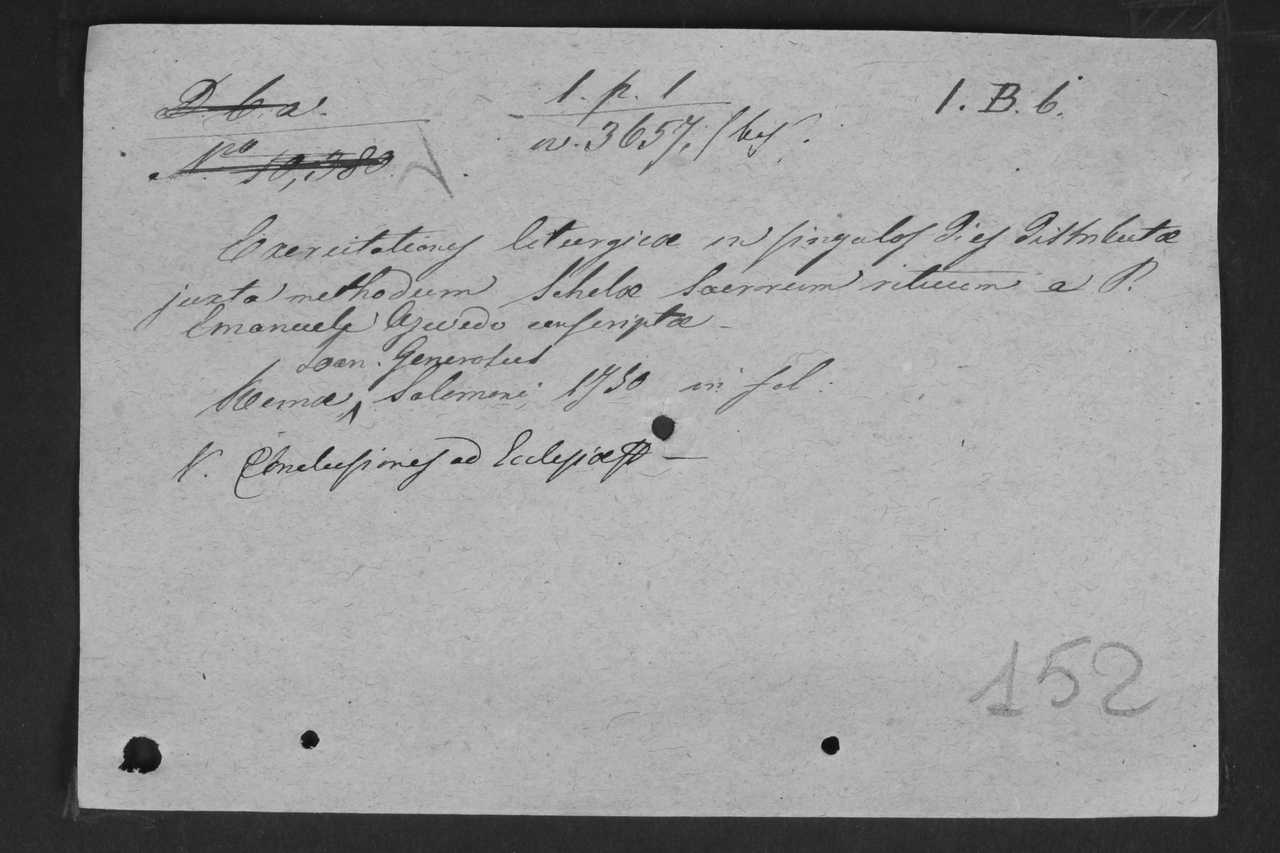 D. b. a.
1. p. 1
1. B. 6.
Nro 10,380
n. 3657./bis.
Exercitationes liturgicæ in singulos Dies Distributæ
juxta methodum Scholæ Sacrorum rituum a P.
Emanuele Azevedo conscriptæ
Joan. Generosus
Romæ, Salomoni 1750 in fol.
V. Conclusiones ad Ecclesiæ —
152